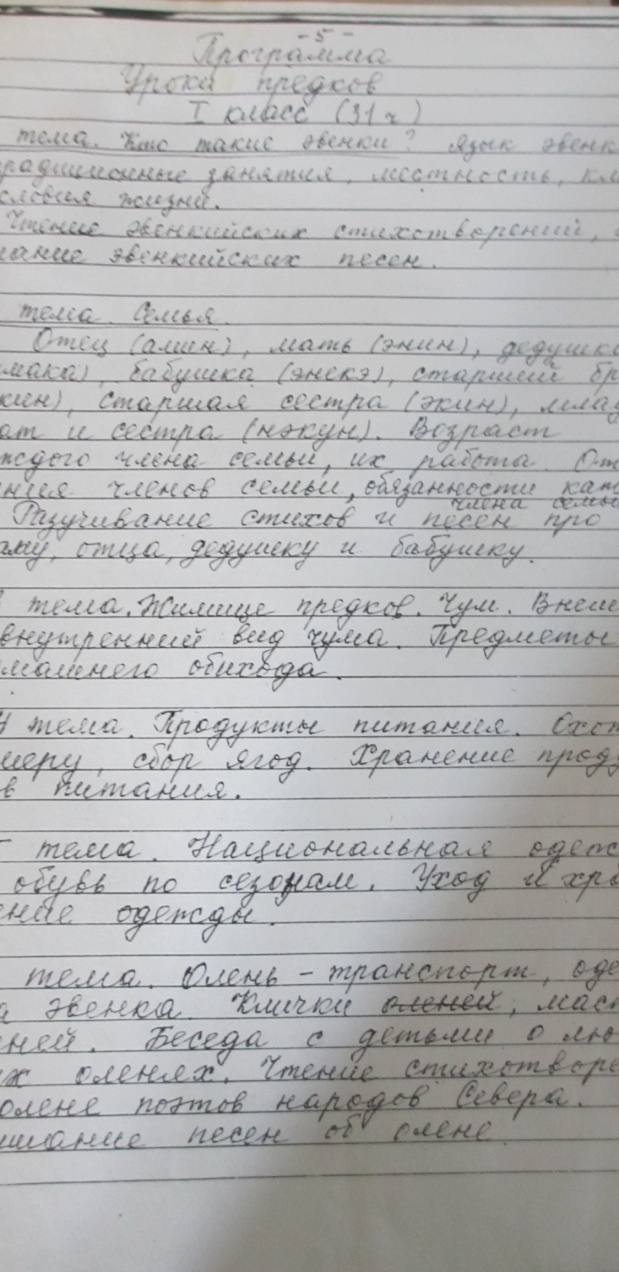 - 5 -
Программа
Уроки предков
I класс (31 ч)
тема. Кто такие эвенки? Язык эвенк
радиционные занятия, местность, кл
словия жизни.
Чтение эвенкийских стихотворений,
шание эвенкийских песен.
тема. Семья.
Отец (амин), мать (энин), дедушка
мака), бабушка (энекэ), старший бр
кин), старшая сестра (экин), млад
ат и сестра (нэкун). Возраст
ждого члена семьи, их работа. От
ния членов семьи, обязанности каж
члена семьи
Разучивание стихов и песен про
аму, отца, дедушку и бабушку.
тема. Жилище предков. Чум. Внеш
внутренний вид чума. Предметы
машнего обихода.
тема. Продукты питания. Охот
меру, сбор ягод. Хранение проду
в питания.
тема. Национальная одеж
обувь по сезонам. Уход и хра
ение одежды.
тема. Олень - транспорт, оде
а эвенка. Клички оленей, маст
ней. Беседа с детьми о лю
х оленях. Чтение стихотворе
олене поэтов народов Севера.
ушание песен об олене